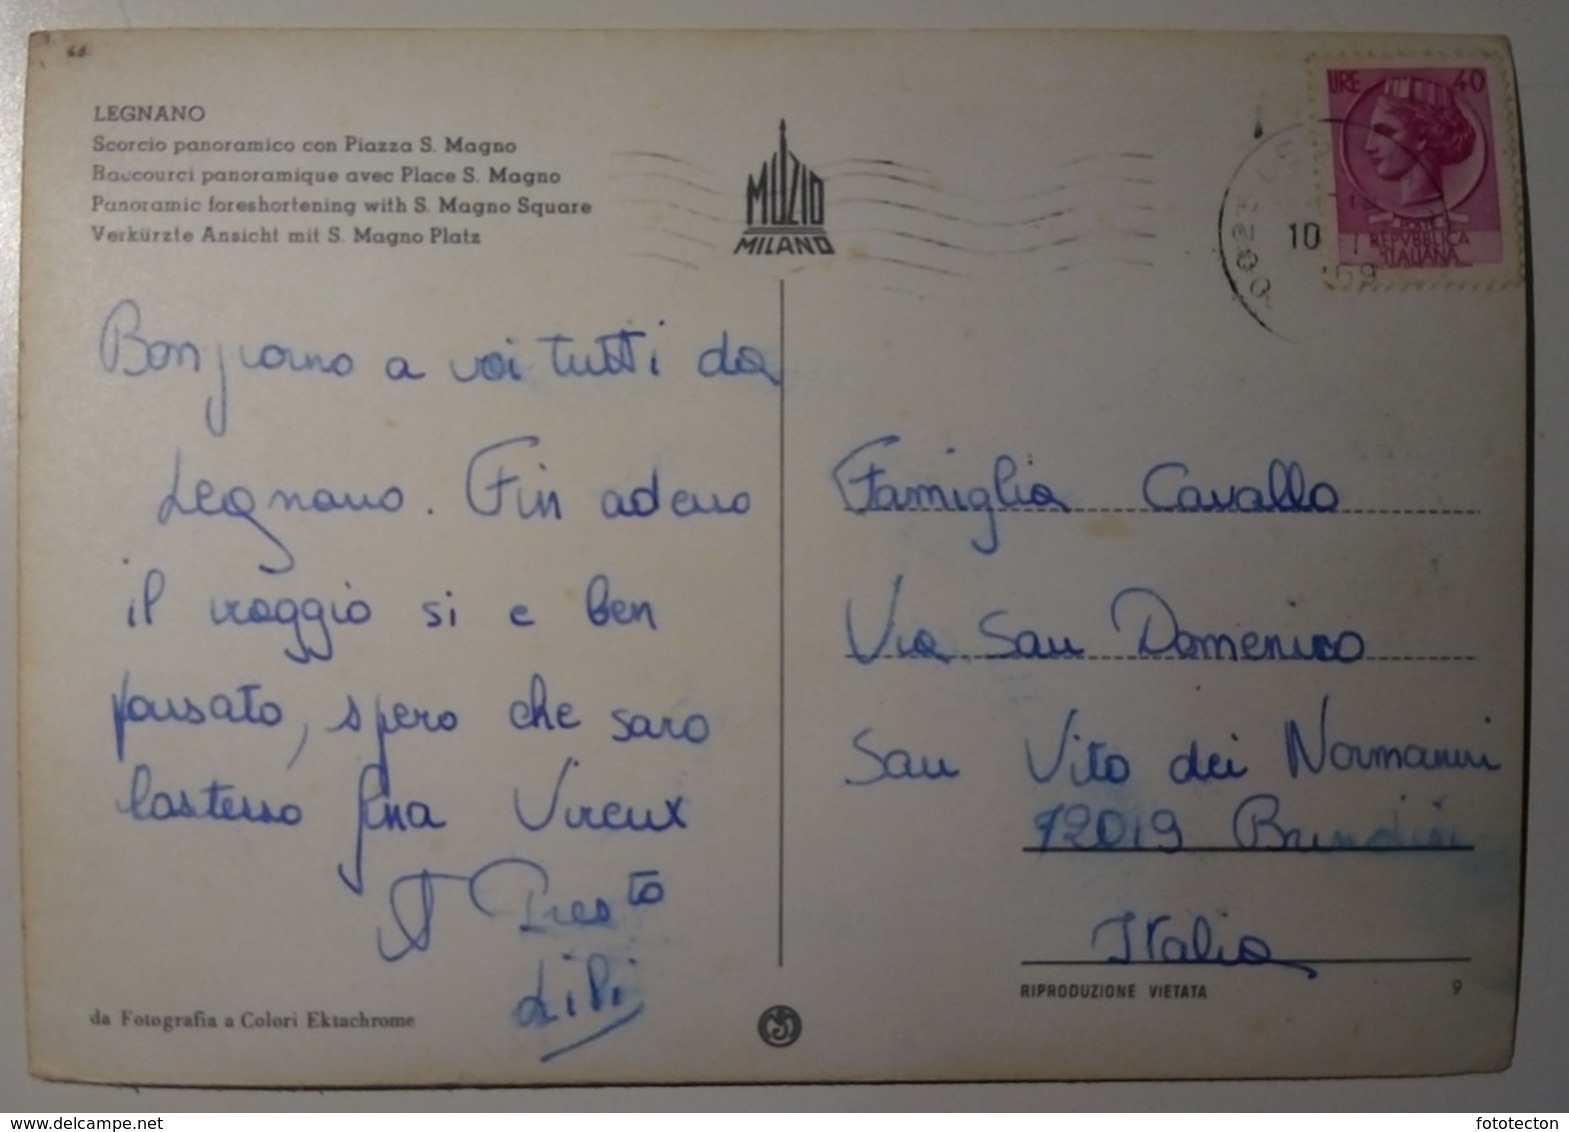 LEGNANO
Scorcio panoramico con Piazza S. Magno
Raccourci panoramique avec Place S. Magno
Panoramic foreshortening with S. Magno Square
Verkürzte Ansicht mit S. Magno Platz
MUZIO
MILANO
LIRE 40
POSTE
REPVBBLICA
ITALIANA
20025
10
Bongiorno a voi tutti da
Legnano. Fin adesso
il viaggio si e ben
passato, spero che saro
lastesso fina Vireux
A Presto
Lili
Famiglia Cavallo
Via San Domenico
San Vito dei Normanni
72019 Brindisi
Italia
RIPRODUZIONE VIETATA
9
da Fotografia a Colori Ektachrome
fototecton